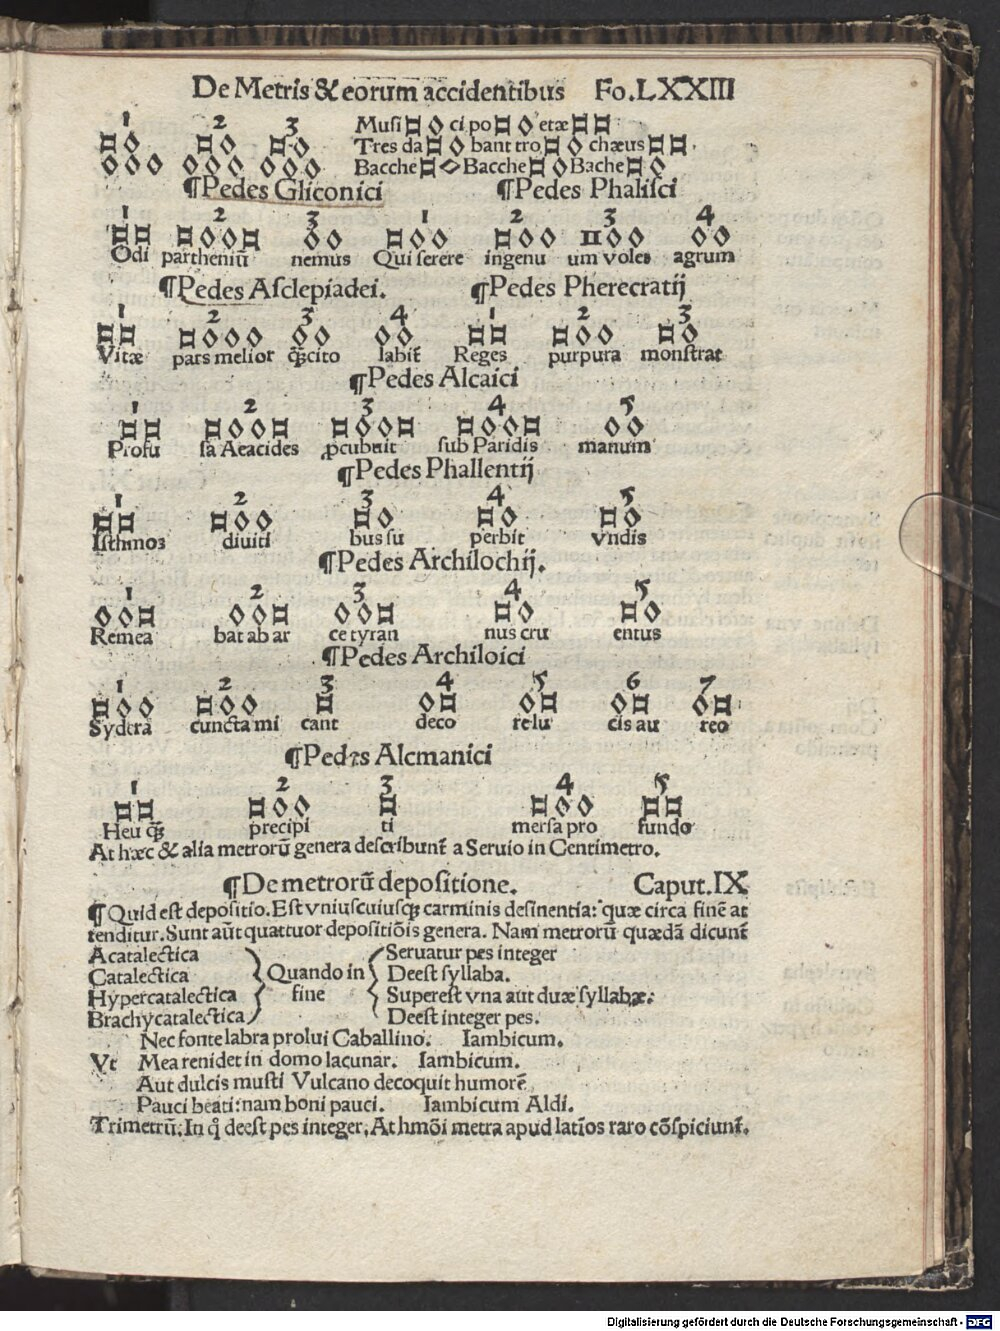 De Metris & eorum accidentibus Fo. LXXIII
1 2 3
Musi ci po etæ
Tres da bant tro chæus
Bacche Bacche Bache
¶Pedes Gliconici ¶Pedes Phalisci
1 2 3 1 2 3 4
Odi partheniū nemus Qui serere ingenu um voles agrum
¶Pedes Asclepiadei. ¶Pedes Pherecratij
1 2 3 4 1 2 3
Vitæ pars melior labit̄ Reges purpura monstrat
¶Pedes Alcaici
1 2 3 4 5
Profu sa Aeacides sub Paridis manum
¶Pedes Phallentij
1 2 3 4 5
Isthmos diuiti bus su perbit vndis
¶Pedes Archilochij.
1 2 3 4 5
Remea bat ab ar ce tyran nus cru entus
¶Pedes Archiloici
1 2 3 4 5 6 7
Sydera cuncta mi cant deco relu cis au reo
¶Pedes Alcmanici
1 2 3 4 5
Heu precipi ti mersa pro fundo
At hæc & alia metrorū genera describunt̄ a Seruio in Centimetro.
¶De metrorū depositione. Caput. IX
¶Quid est depositio. Est vniuscuiusqꝫ carminis desinentia: quæ circa finē at
tenditur. Sunt aūt quattuor depositiōis genera. Nam metrorū quædā dicunt̄
Acatalectica Seruatur pes integer
Catalectica Quando in Deest syllaba.
Hypercatalectica fine Superest vna aut duæ syllabæ.
Brachycatalectica Deest integer pes.
Nec fonte labra prolui Caballino. Iambicum.
Vt Mea renidet in domo lacunar. Iambicum.
Aut dulcis musti Vulcano decoquit humorē
Pauci beati: nam boni pauci. Iambicum Aldi.
Trimetrū. In q̄ deest pes integer, At hmōi metra apud latīos raro cōspiciunt̄.
Digitalisierung gefördert durch die Deutsche Forschungsgemeinschaft - DFG